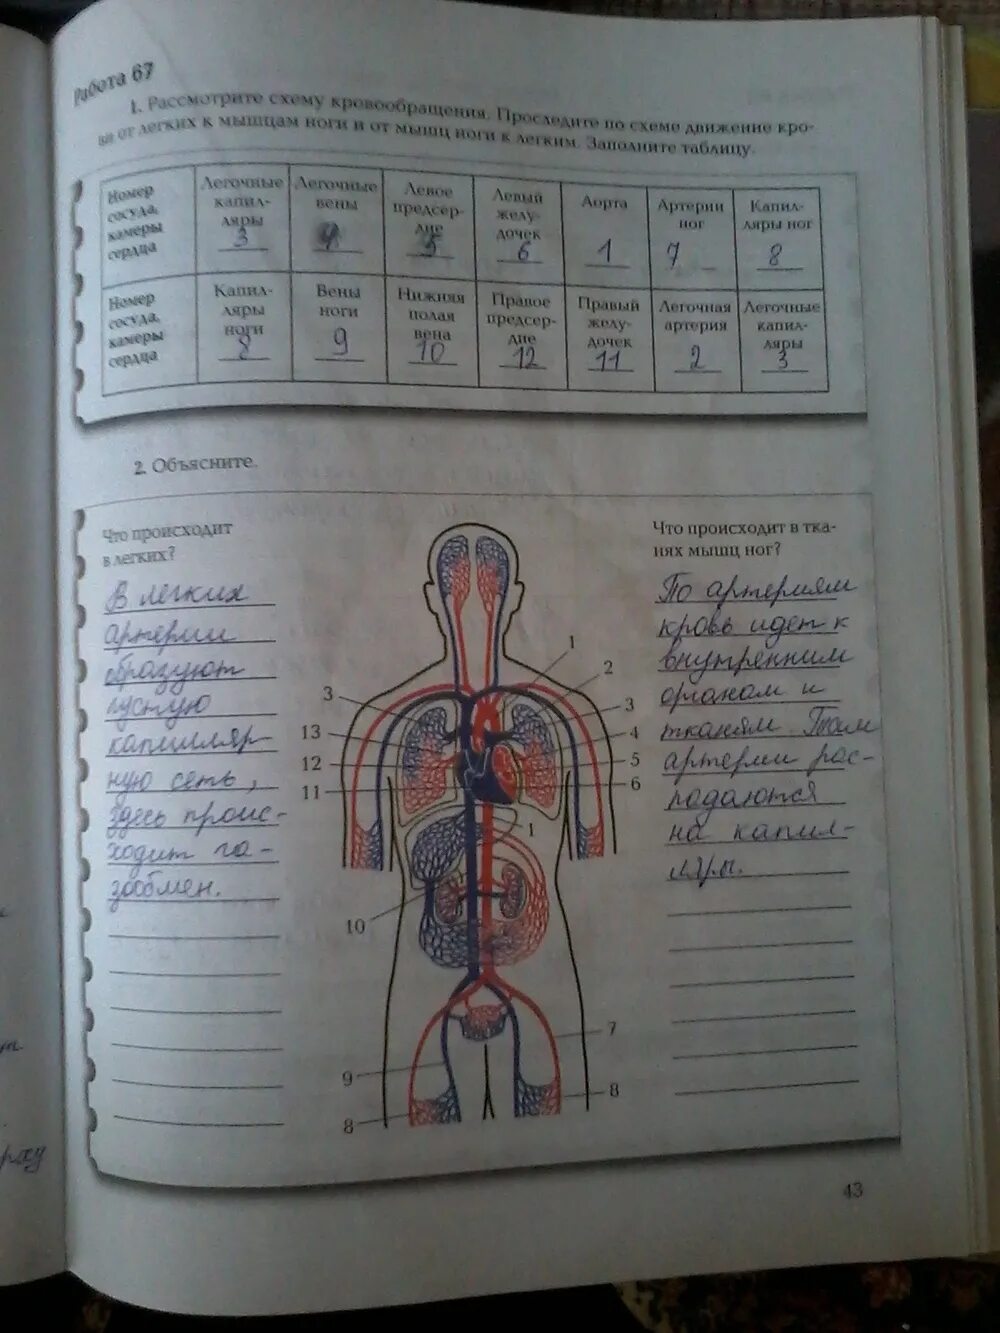 Работа 67
1. Рассмотрите схему кровообращения. Проследите по схеме движение кро-
ви от легких к мышцам ноги и от мышц ноги к легким. Заполните таблицу.
Номер сосуда, камеры сердца
Легочные капил-ляры 3
Легочные вены 4
Левое предсер-дие 5
Левый желу-дочек 6
Аорта 1
Артерии ног 7
Капил-ляры ног 8
Номер сосуда, камеры сердца
Капил-ляры ноги 8
Вены ноги 9
Нижняя полая вена 10
Правое предсер-дие 12
Правый желу-дочек 11
Легочная артерия 2
Легочные капил-ляры 3
2. Объясните.
Что происходит
в легких?
В легких
артерии
образуют
густую
капилляр-
ную сеть,
здесь проис-
ходит га-
зообмен.
Что происходит в тка-
нях мышц ног?
По артериям
кровь идет к
внутренним
органам и
тканям. Там
артерии рас-
подаются
на капил-
ляры.
1
2
3
3
13
4
12
5
11
6
1
10
7
9
8
8
43
рху